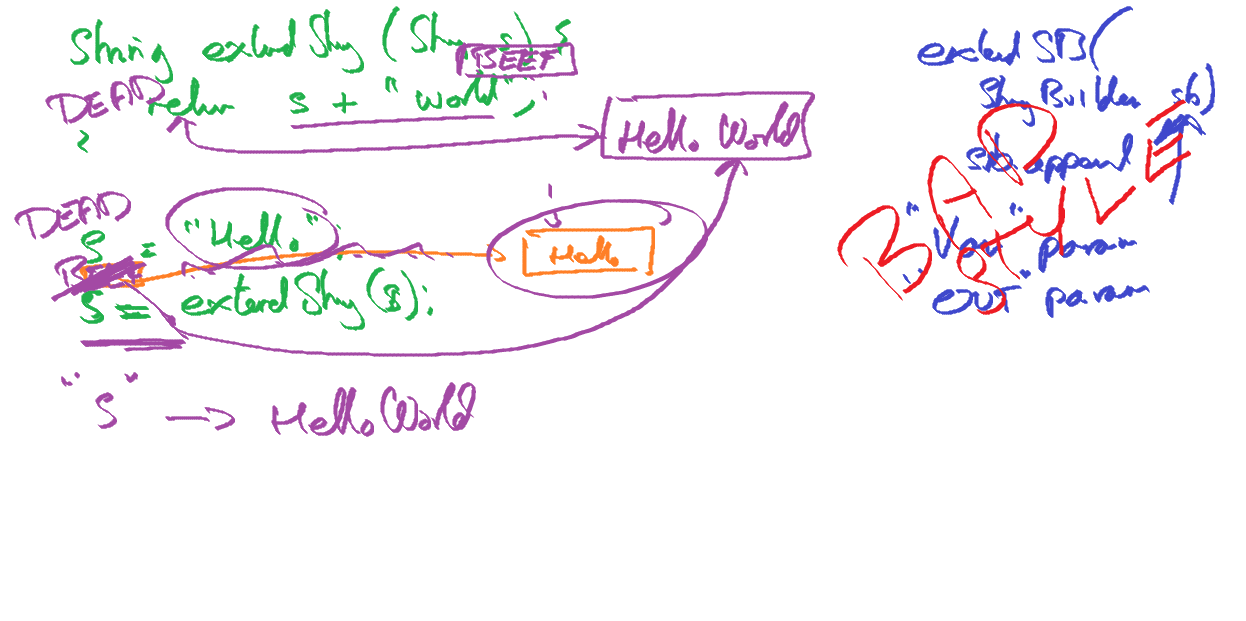 String extendString (String s) {
BEEF
DEAD return s + "world";
}
Hello World
DEAD
s = "Hello";
Hello
s = extendString (s);
"s" → Hello World
extend SB(
StringBuilder sb)
sb.append
"Var" param
"OUT" param
BAD
STYLE